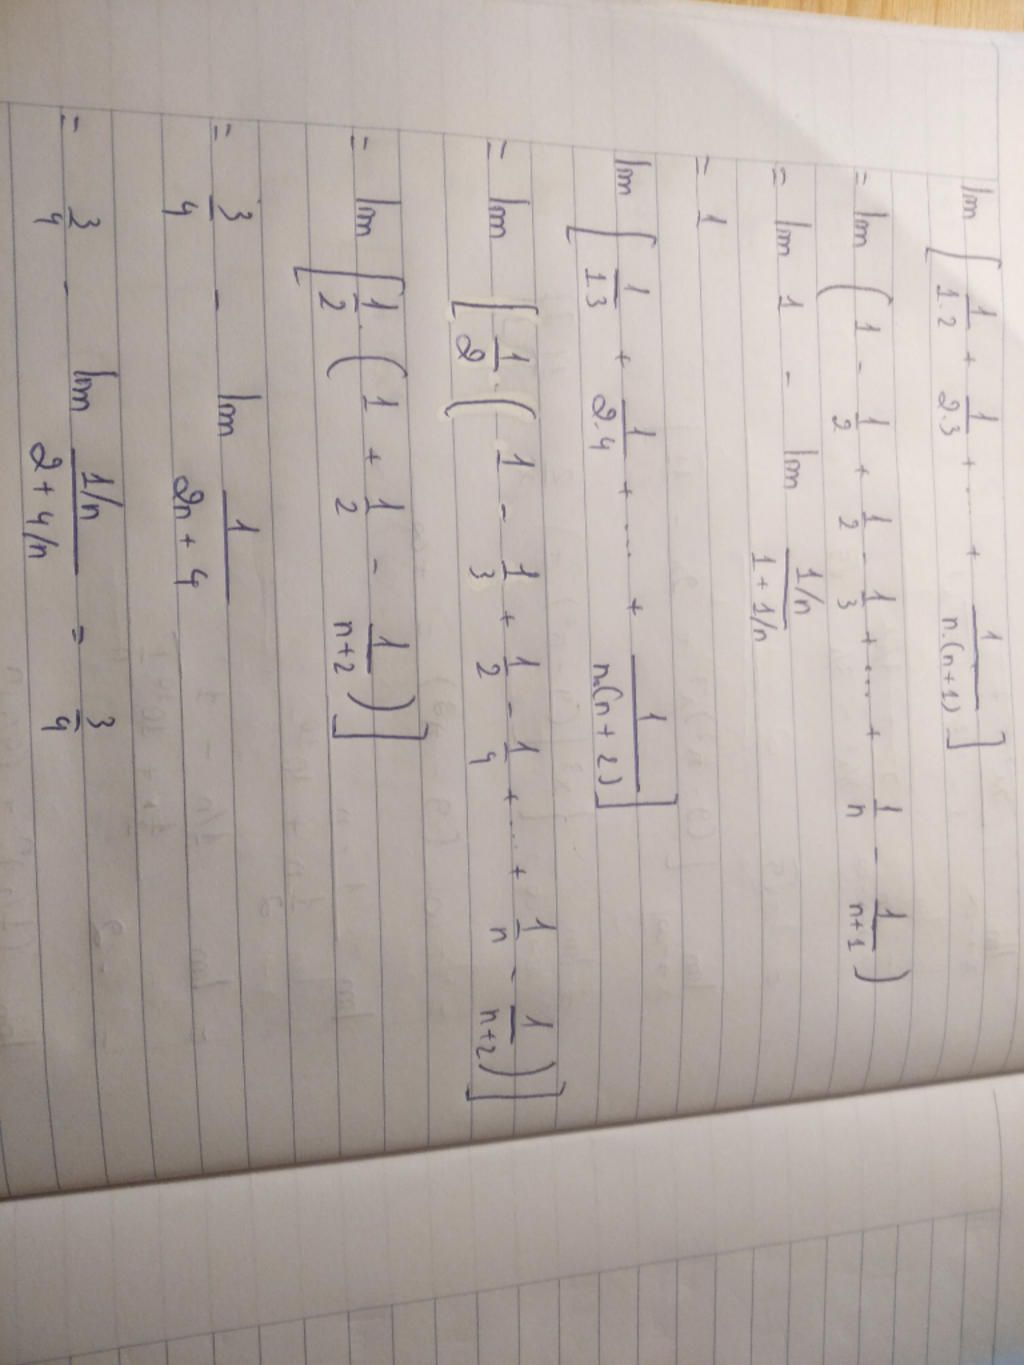 lim [ 1/1.2 + 1/2.3 + .... + 1/n.(n+1) ]
= lim ( 1 - 1/2 + 1/2 - 1/3 + .... + 1/n - 1/n+1 )
= lim 1 - lim (1/n)/(1 + 1/n)
= 1
lim [ 1/1.3 + 1/2.4 + .... + 1/n.(n+2) ]
= lim [ 1/2 . ( 1 - 1/3 + 1/2 - 1/4 + .... + 1/n - 1/n+2 ) ]
= lim [ 1/2 . ( 1 + 1/2 - 1/n+2 ) ]
= 3/4 - lim 1/(2n + 4)
= 3/4 - lim (1/n)/(2 + 4/n) = 3/4